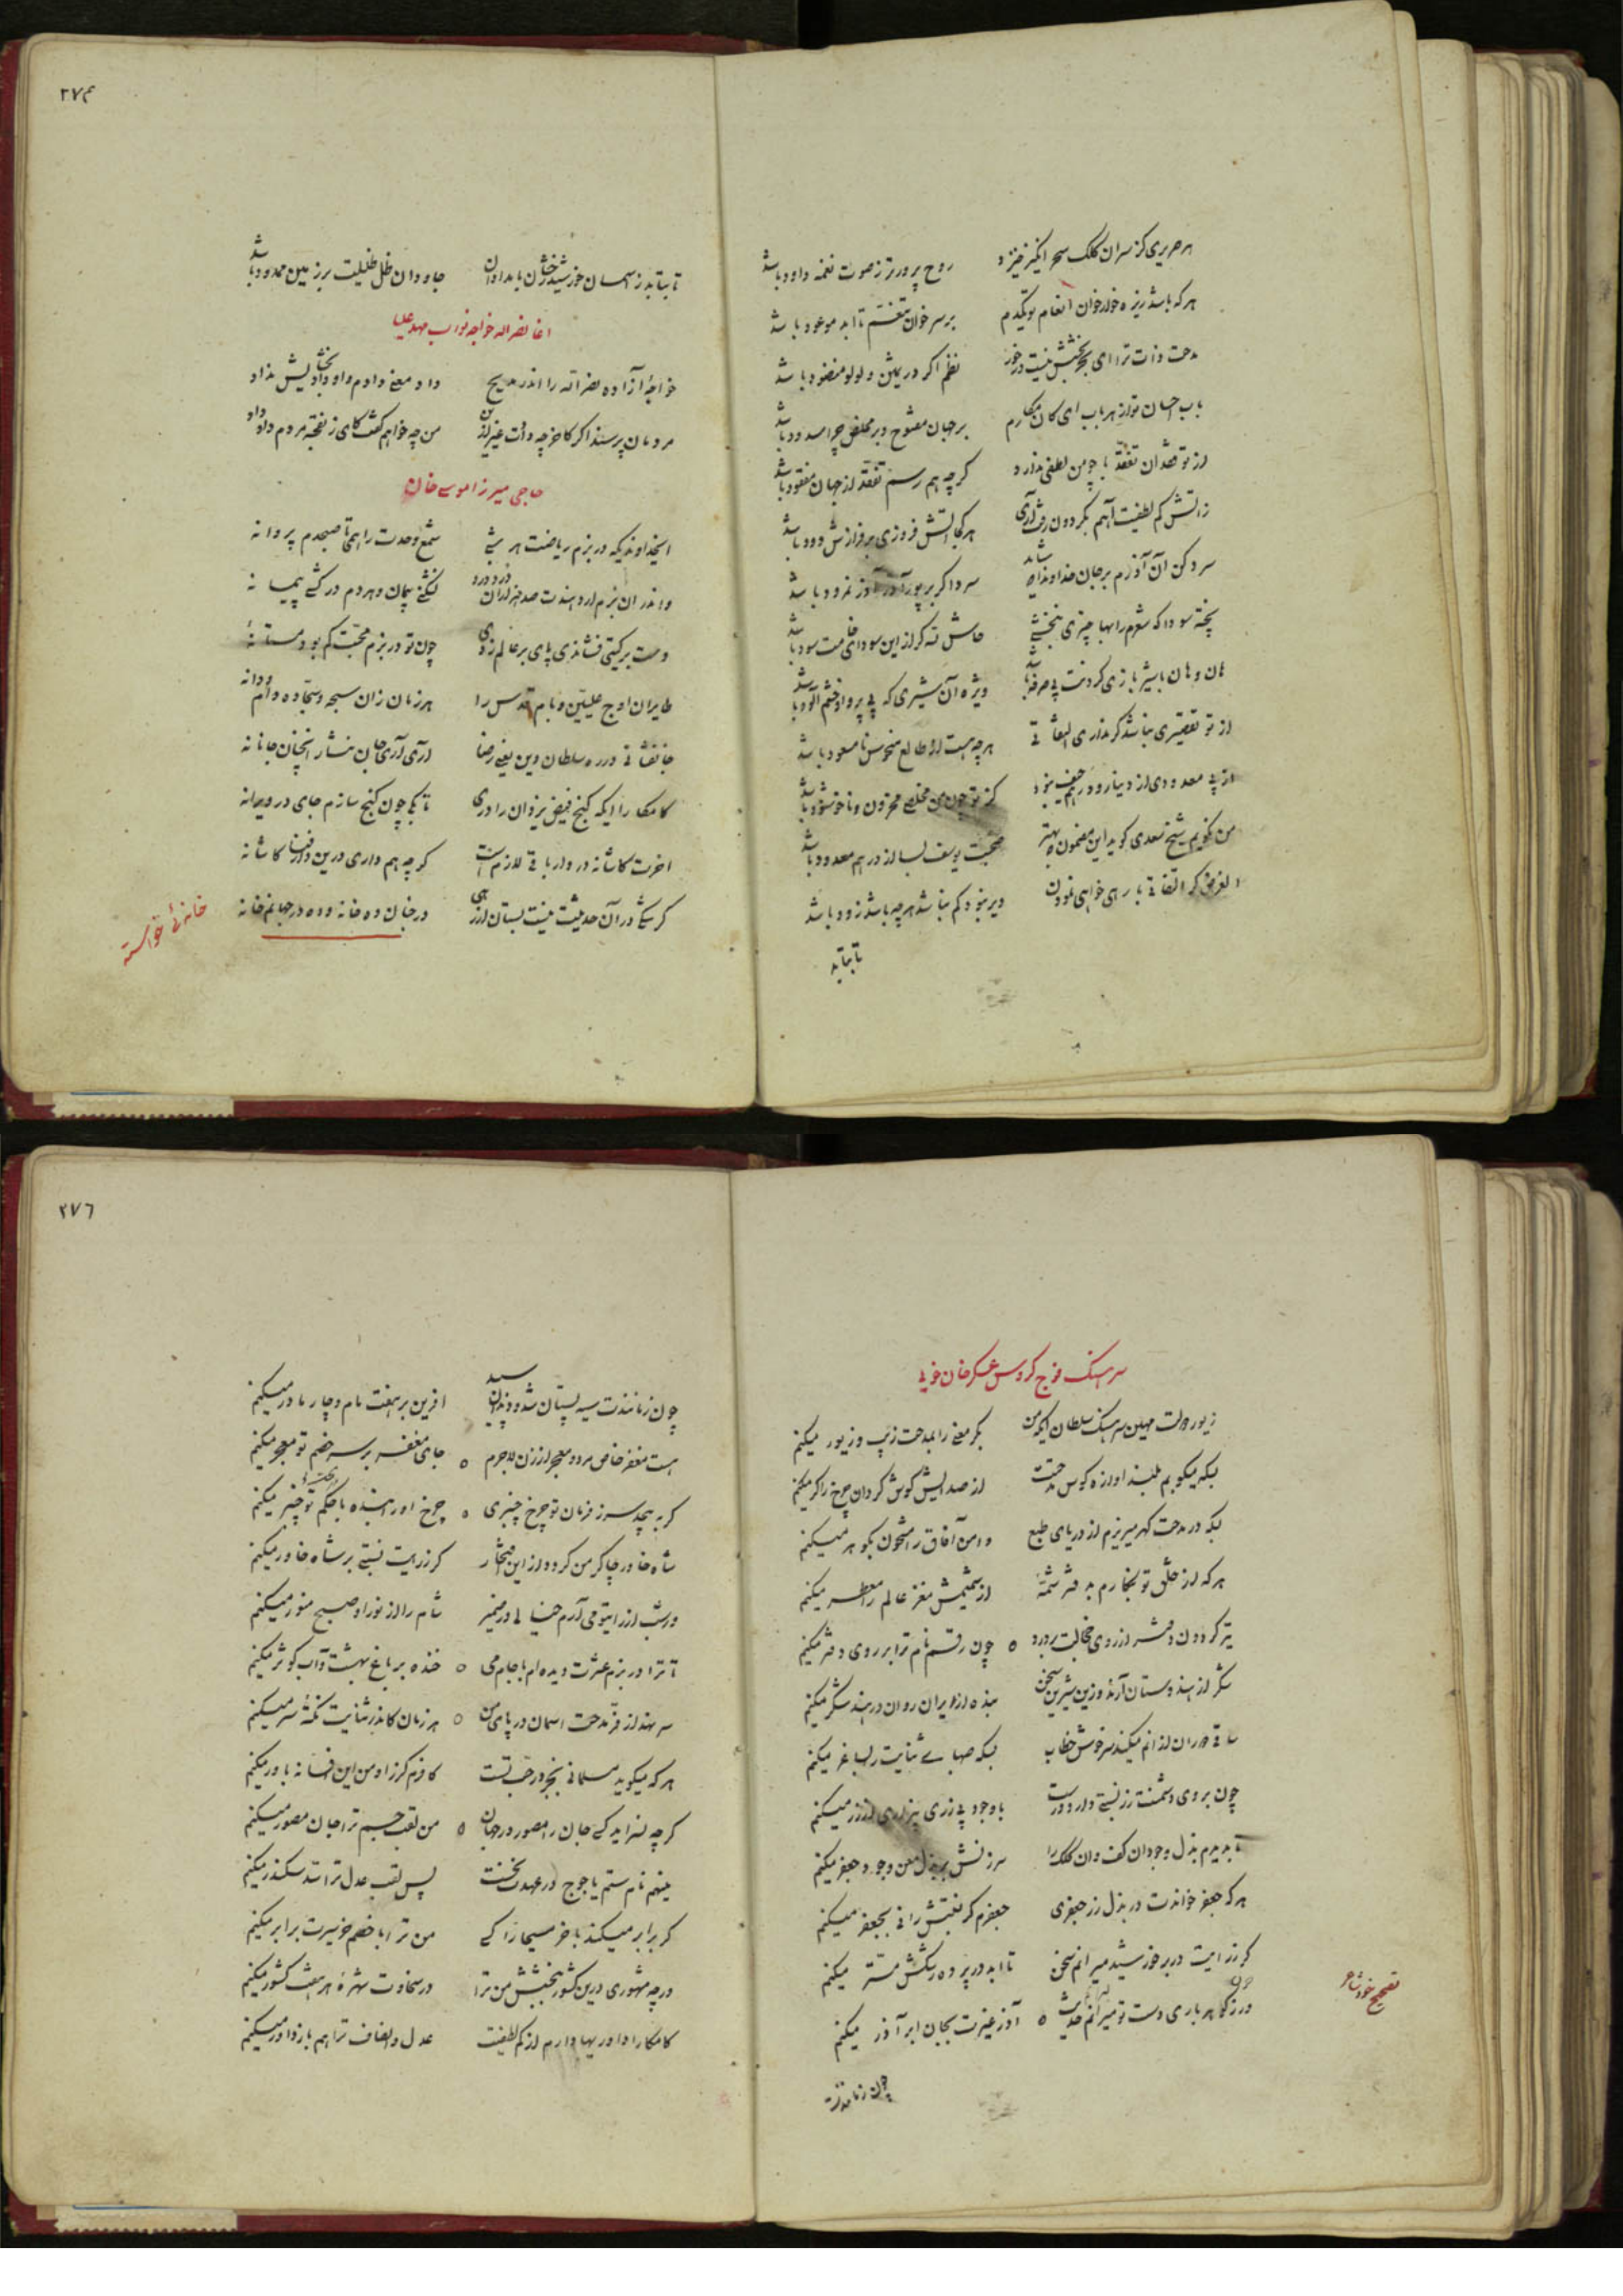 هر صریری کز سر آن کلک سحر انگیز خیزد روح پرورتر ز صوت نغمه داود باشد
هر که باشد ریزه خوار خوان انعام تو یکدم بر سر خوان تنعم تا ابد موعود باشد
مدحت ذات ترا ای بخشش نیست در خور نظم اگر در ثمین و لولو منضود باشد
باب احسان تو از هر باب ای کان مکارم بر جهان مفتوح و بر مخلص چرا مسدود باشد
از تو قصدان تفقد با چو من لطفی ندارد گرچه هم رسم تفقد از جهان مفقود باشد
ز آتش کم لطفیت آهم بگردون رفت آری هر کجا آتش فروزی بر فرازش دود باشد
سرد کن آن آذرم بر جان خداوندا که شاید سرد اگر بر پور آذر آذر نمرود باشد
پخته سودا که شعرم را بها چیزی نبخشی حاش لله کر از این سودای خامت سود باشد
هان و هان با شیر بازی کردنت بی صرفه باشد ویژه آن شیری که بی پروا و خشم آلود باشد
از تو تقصیری نباشد گر نداری التفاتی هر چه هست از طالع منحوس نامسعود باشد
از پی معدودی از دینار و درهم حیف نبود کز تو چون من مخلص محزون و ناخوشنود باشد
من نگویم شیخ سعدی گوید این مضمون بهتر صحبت یوسف به از دراهم معدود باشد
الغرض گر التفاتی باری خواهی نمودن دیر نبود کم نباشد هر چه باشد زود باشد
تا بتابد
۲۷۴
تا بتابد ز آسمان خورشید رخشان بامدادان جاودان ظل ظلیلت بر زمین ممدود باشد
اغا نصر اله خواجه نواب مهد علیا
خواجۀ آزاده نصر اله را اندر مدیح داد معنی دادم و او داد بخشایش نداد
مردمان پرسند اگر کاخر چه دادت غیر ازین من چه خواهم گفت کای زنقحبه مردم داد داد
حاجی میرزا موسی خان
ایخداوندیکه در بزم ریاضت هر شبی شمع وحدت را همی تا صبحدم پروانه
واندر آن بزم ار دهندت صد هزاران دردِ درد نشکنی پیمان و هر دم در کشی پیمانه
دست بر گیتی فشاندی پای بر عالم زدی چون تو در بزم محبت کم بود مستانۀ
طایران اوج علیین و بام قدس را هر زمان زان سبحه و سجاده دام و دانه
جانفشانی در ره سلطان دین یعنی رضا آری آری جان نثار آنچنان جانانه
کامکارا ایکه گنج فیض یزدان را دری تا بکی چون گنج سازم جای در ویرانه
آخرت کاشانه در دار باقی لازم است گرچه هم داری درین دار فنا کاشانه
گر شکی در آن حدیثت نیست بستان از رهی در جنان ده خانه و ده در جهانم خانه
خانۀ خواسته
سرهنگ فوج کروس عسکر خان خویی
زیور دولت مهین سرهنگ سلطان ایکه من بکر معنی را بمدحت زیب و زیور میکنم
بسکه میکوبم بلند آوازه کوس مدحتت از صدایش گوش گردان چرخ را کر میکنم
بسکه در مدحت گهر میریزم از دریای طبع دامن آفاق را مشحون بگوهر میکنم
هر که از خلق تو بنگارم به دفتر شمۀ از شمیمش مغز عالم را معطر میکنم
تیر گردون دفتر از روی خجالت بر درد چون رقم نام ترا بر روی دفتر میکنم
شکر از هندوستان آرند و زین شیرین سخن بنده از ایران روان در هند شکر میکنم
ساقی دوران از آنم میکند سرخوش خطاب بسکه صهبای ثنایت را بساغر میکنم
چون بروی دشمنت زر نسبتی دارد درست با وجود بی زری بیزاری از زر میکنم
تا بدیدم بذل وجود آن کف و آن کلک را سرزنش بر بذل معن وجود جعفر میکنم
هر که جعفر خواندت در بذل زر جعفری جعفرم گر نسبتش را نی بجعفر میکنم
گر ز رایت در بر خورشید میرانم سخن تا ابد در پرده رشکش مستر میکنم
ور ز گوهر باری دست تو میرانم حدیث آذر غیرت بجان ابر آذر میکنم
تصحیح خود شاعر
چون زنانندت
۲۷۶
چون زنانندت سیه پستان شد و وندان سپید آفرین بر هفت مام و چار مادر میکنم
هست مغفر خاص مرد و معجر از زن لاجرم جای مغفر بر سر خصم تو معجر میکنم
گر بپیچد سر ز فرمان تو چرخ چنبری چرخ اور ابنده با حکم تو چنبر میکنم
شاه خاور چاکر من گردد از این افتخار گر ز رایت نسبتی بر شاه خاور میکنم
ور شب از رایت همی آرم خیالی در ضمیر شام را از نور او صبح منور میکنم
تا ترا در بزم عشرت دیده ام با جام می خنده بر باغ بهشت و آب کوثر میکنم
سر نهد از فر مدحت آسمان در پای من هر زمان کاندر ثنایت نکتۀ سر میکنم
هر که میگوید مسلمانی بجز در حب تست کافرم گر زاو من این افسانه باور میکنم
گرچه نسراید کسی جان را مصور در جهان من لقب جسم ترا جان مصور میکنم
مینهم نام ستم یاجوج در عهدت نخست پس لقب عدل ترا سد سکندر میکنم
گر برابر میکند با خر مسیحا را کسی من ترا با خصم خر سیرت برابر میکنم
ورچه مشهوری درین کشور ببخشش من ترا در سخاوت شهرۀ هر هفت کشور میکنم
کامکارا داوریها دارم از کم لطفیت عدل و انصاف ترا هم باز داور میکنم